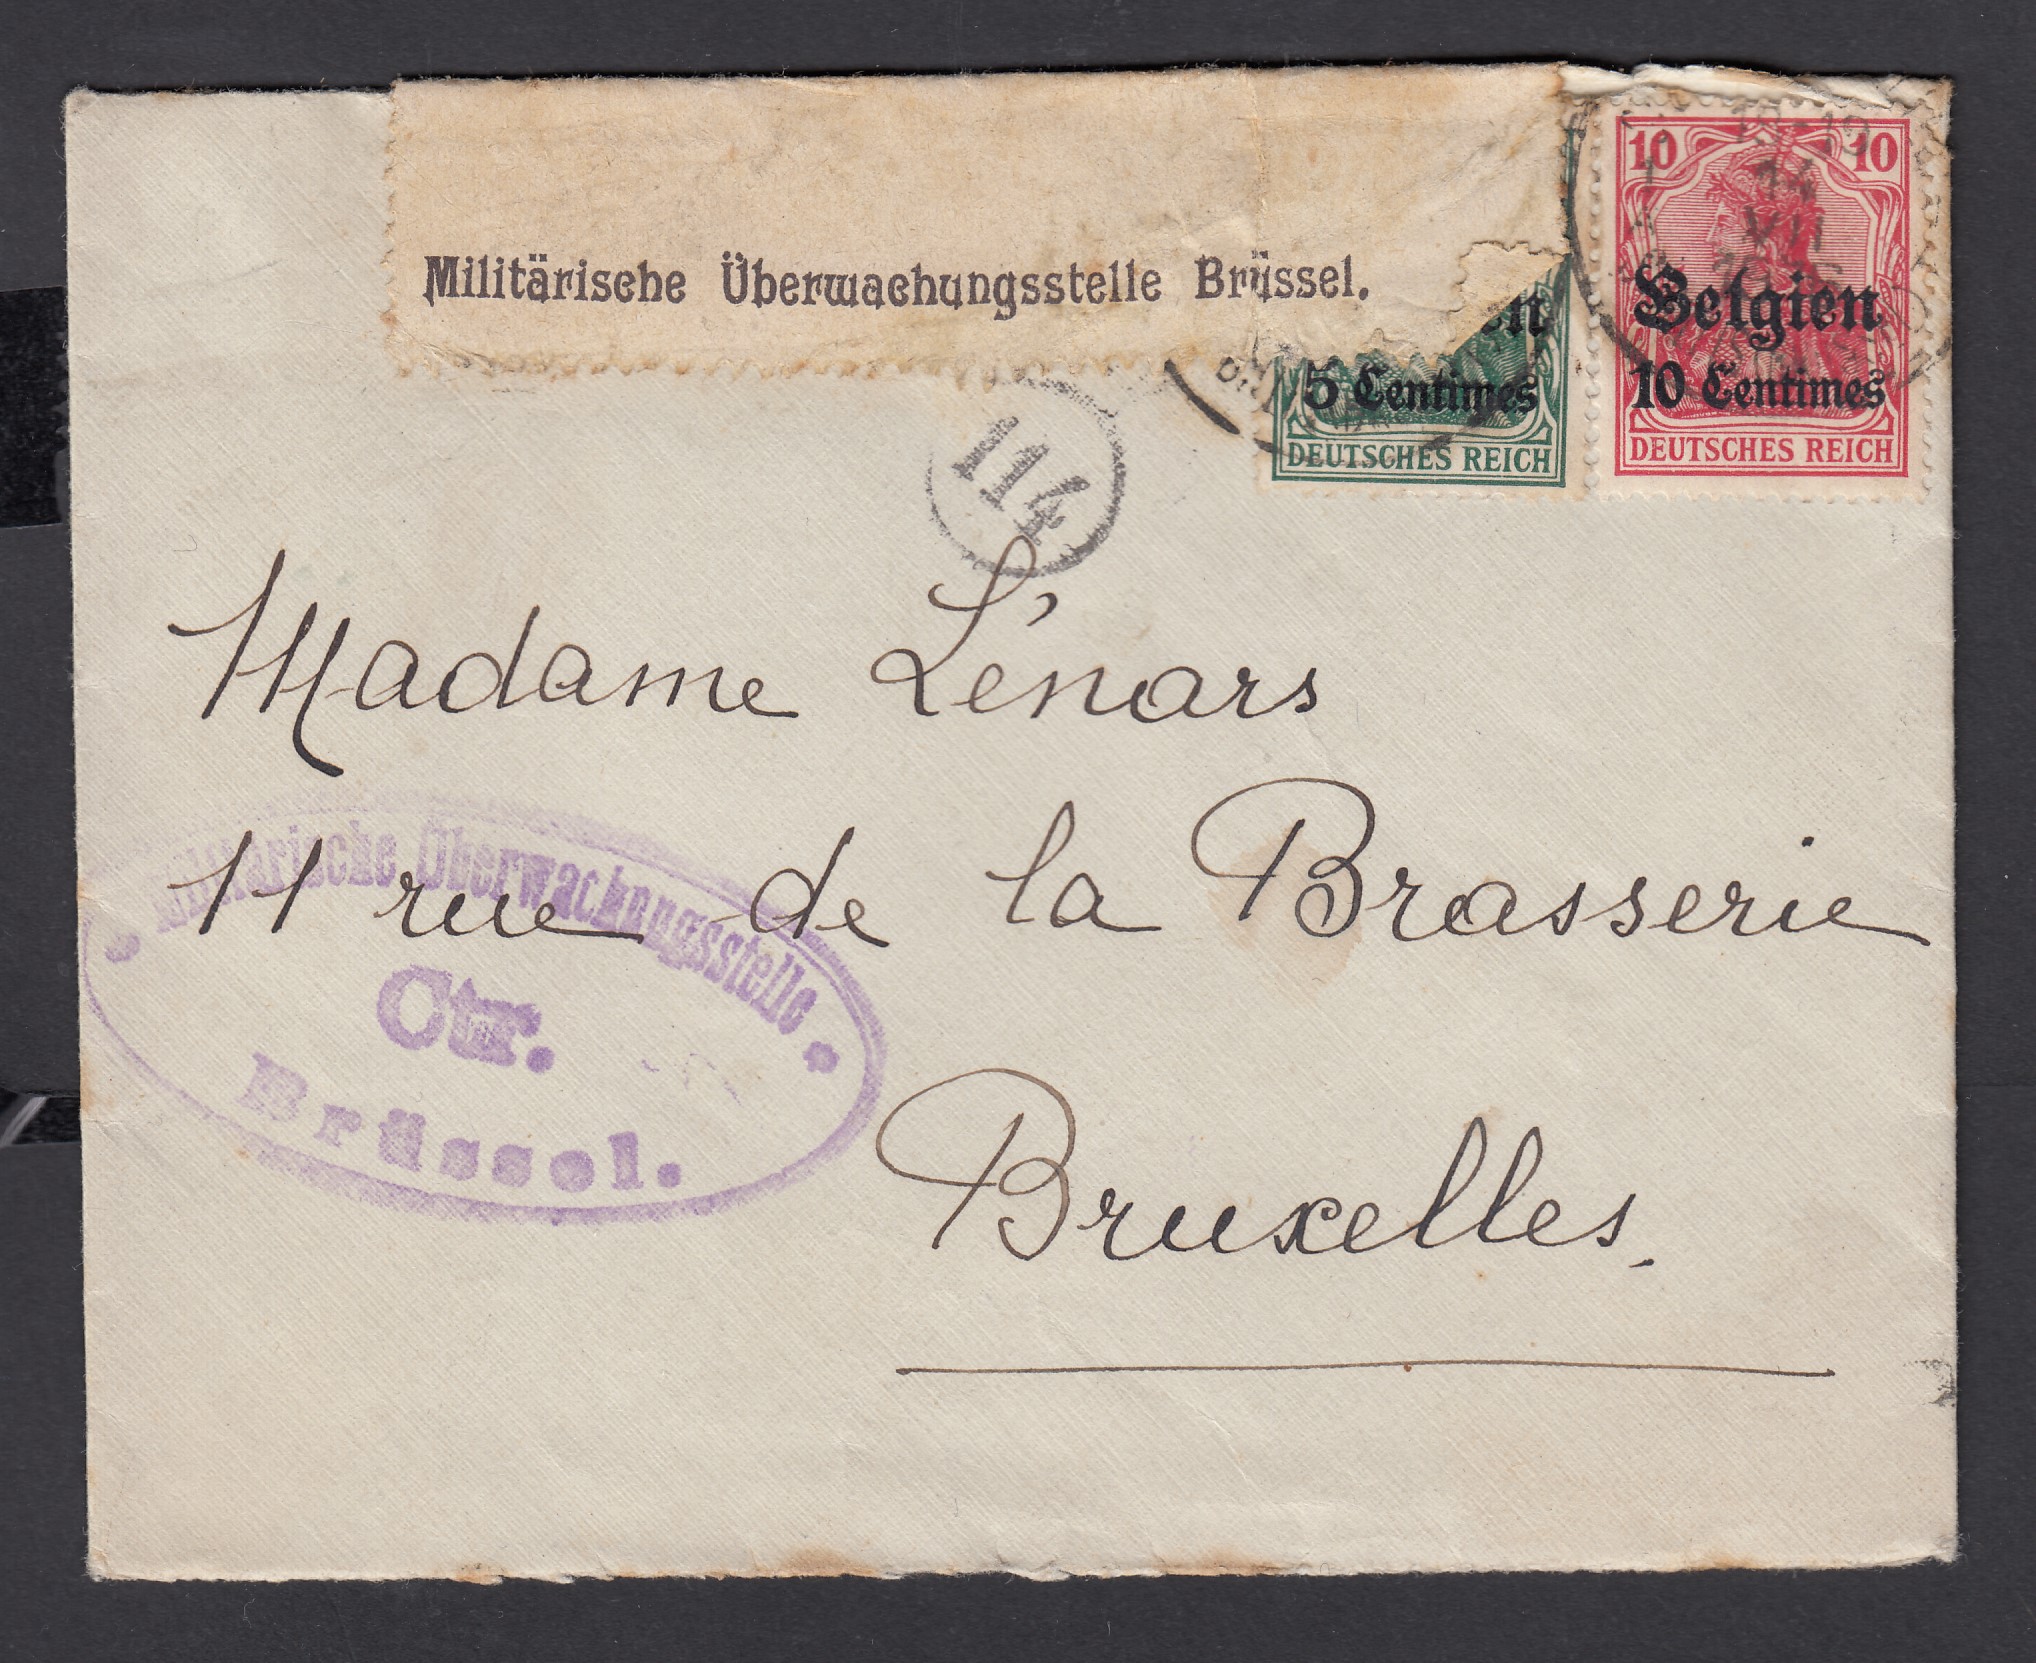 Militärische Überwachungsstelle Brüssel.
10 10
14
VII
Belgien
10 Centimes
DEUTSCHES REICH
5 Centimes
DEUTSCHES REICH
114
Madame Lénars
11 rue de la Brasserie
Bruxelles.
Militärische Überwachungsstelle
Ctr.
Brüssel.